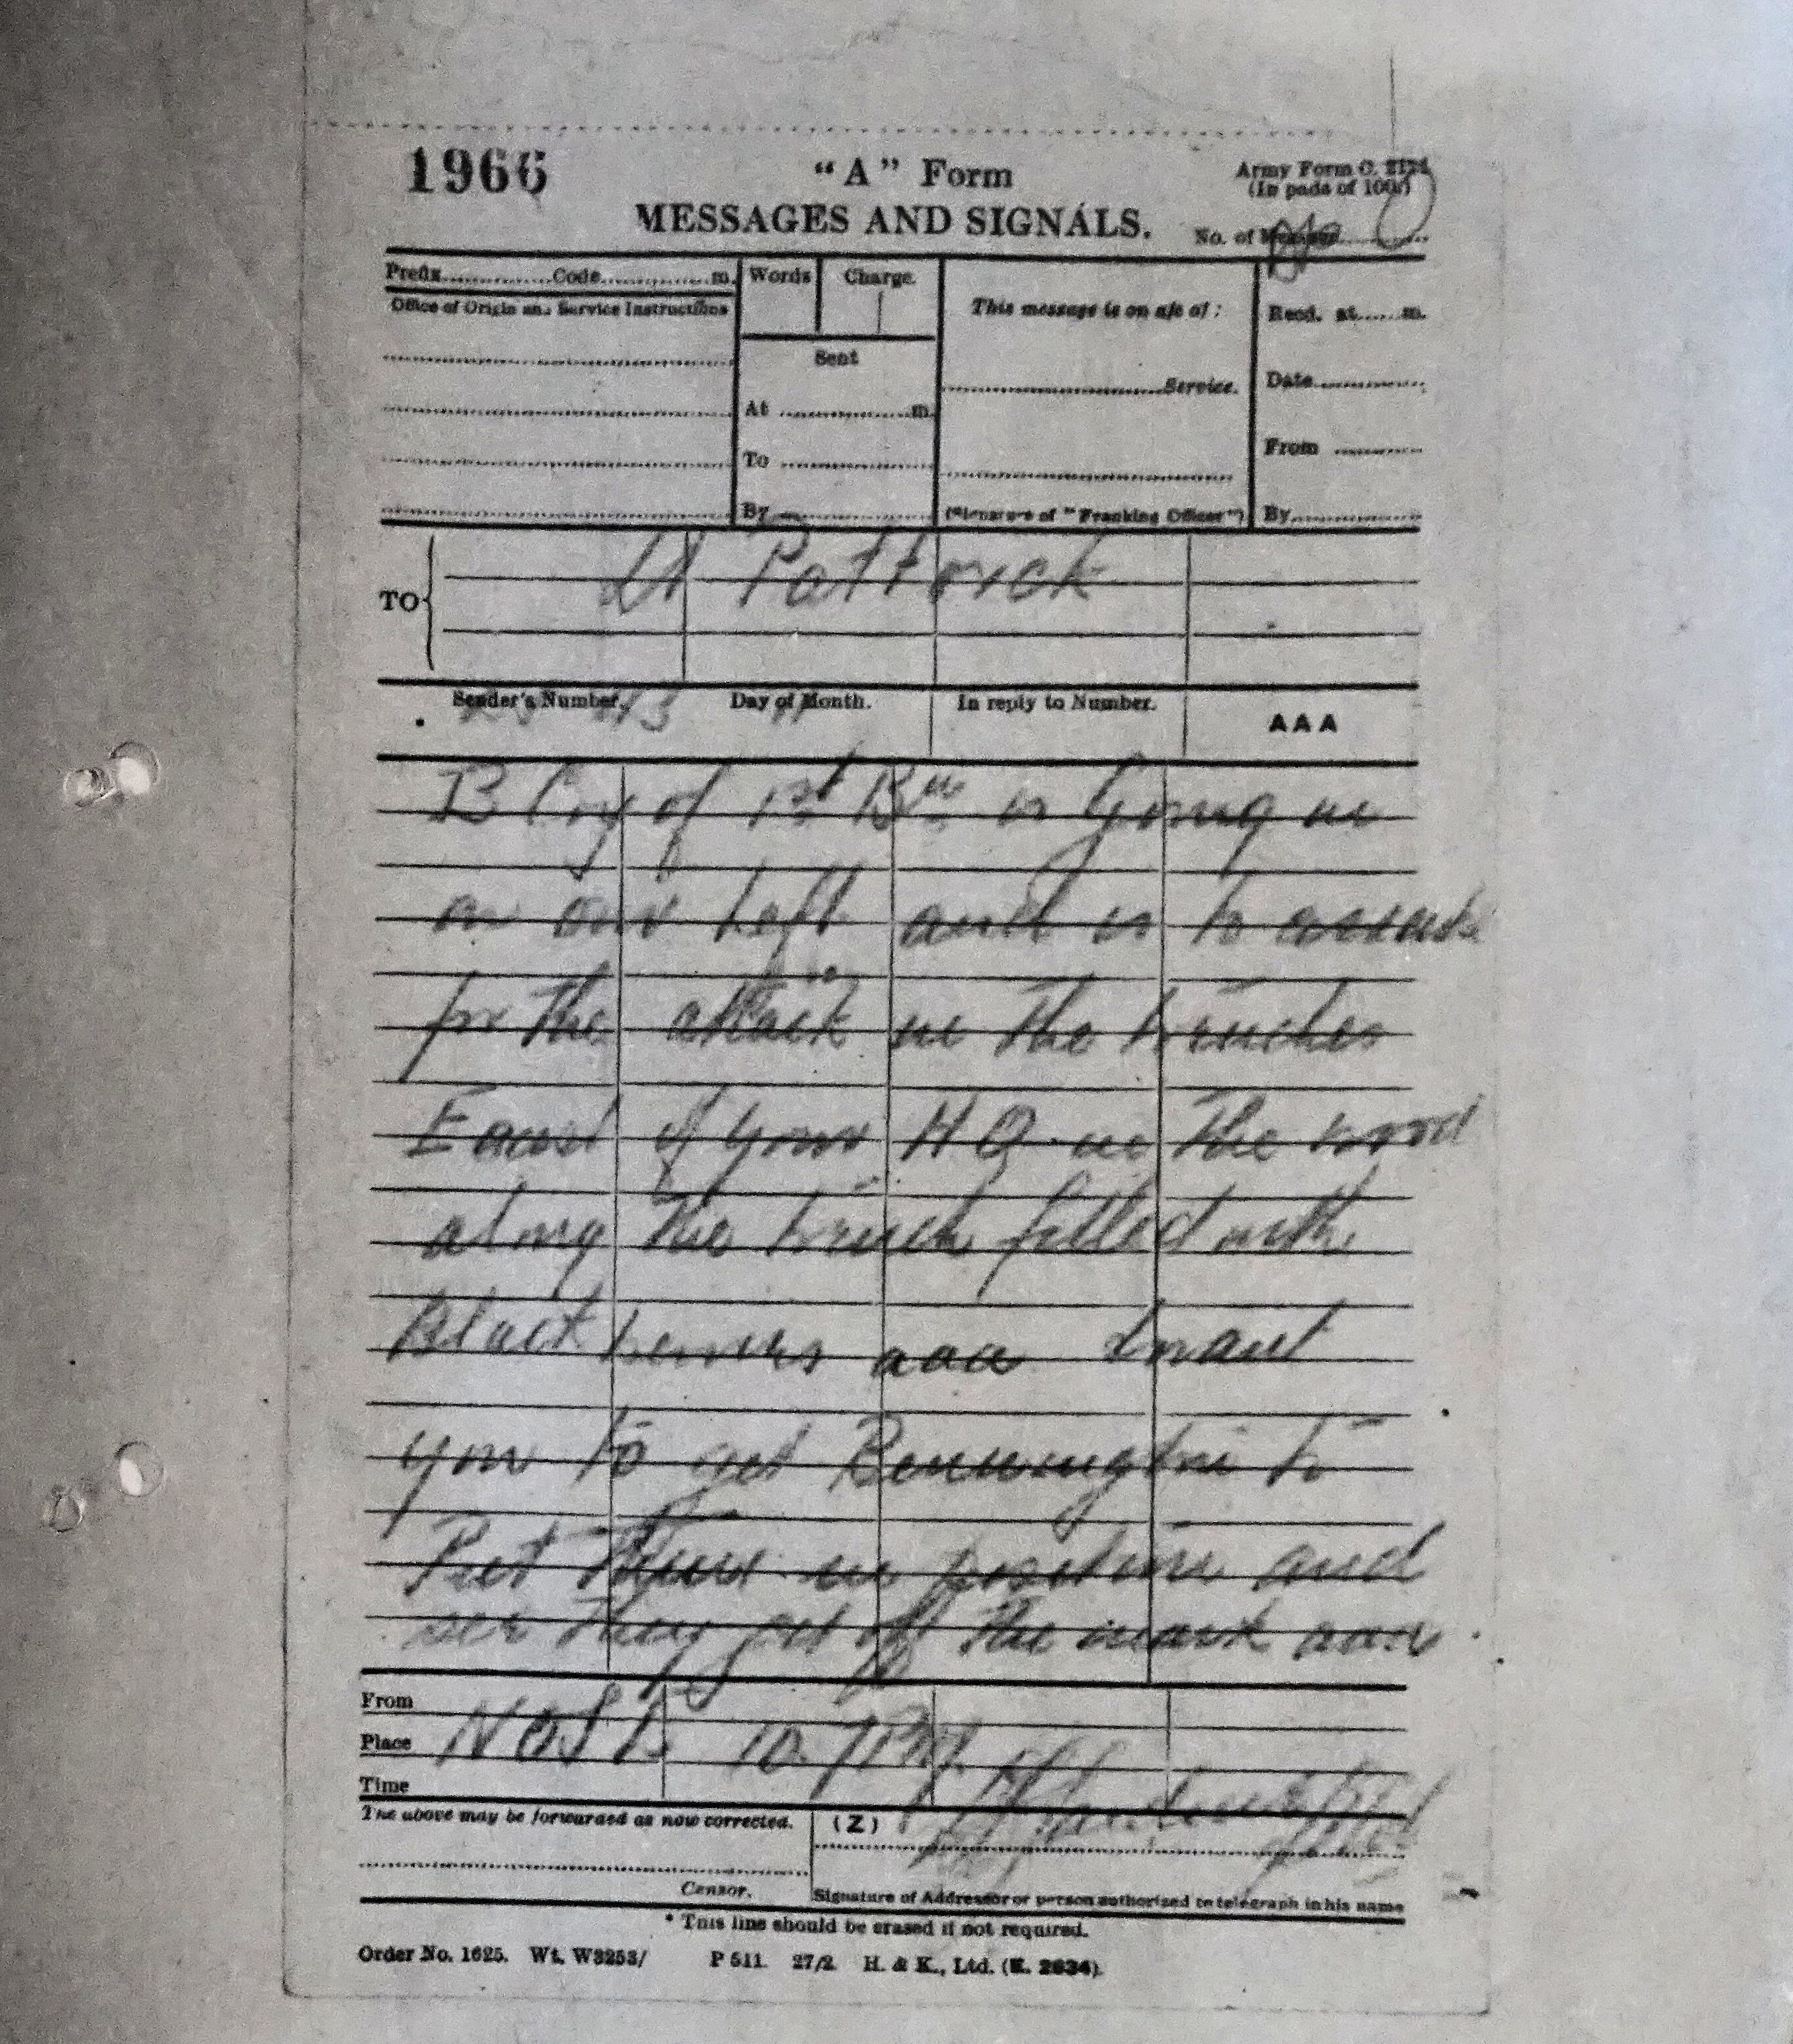 1966
"A" Form
Army Form C. 2121
(In pads of 100.)
MESSAGES AND SIGNALS.
No. of Message
Prefix Code m. Words Charge.
Office of Origin and Service Instructions
This message is on a/c of:
Recd. at m.
Sent
Service.
Date
At m.
From
To
By
(Signature of "Franking Officer")
By
TO
Lt Pattrick
Sender's Number. Day of Month. In reply to Number.
AAA
B Coy of 1st Bn is Going in
on our Left and is to
for the attack in the trenches
E of your HQ in the wood
along the trench filled with
Black aaa I want
you to get Bennington to
Put them in position and
see they get off the mark aaa
From
Place
Time
10. PM
The above may be forwarded as now corrected.
(Z)
Censor.
Signature of Addressor or person authorized to telegraph in his name
* This line should be erased if not required.
Order No. 1625. Wt. W3253/ P 511. 27/2. H. & K., Ltd. (E. 2634).